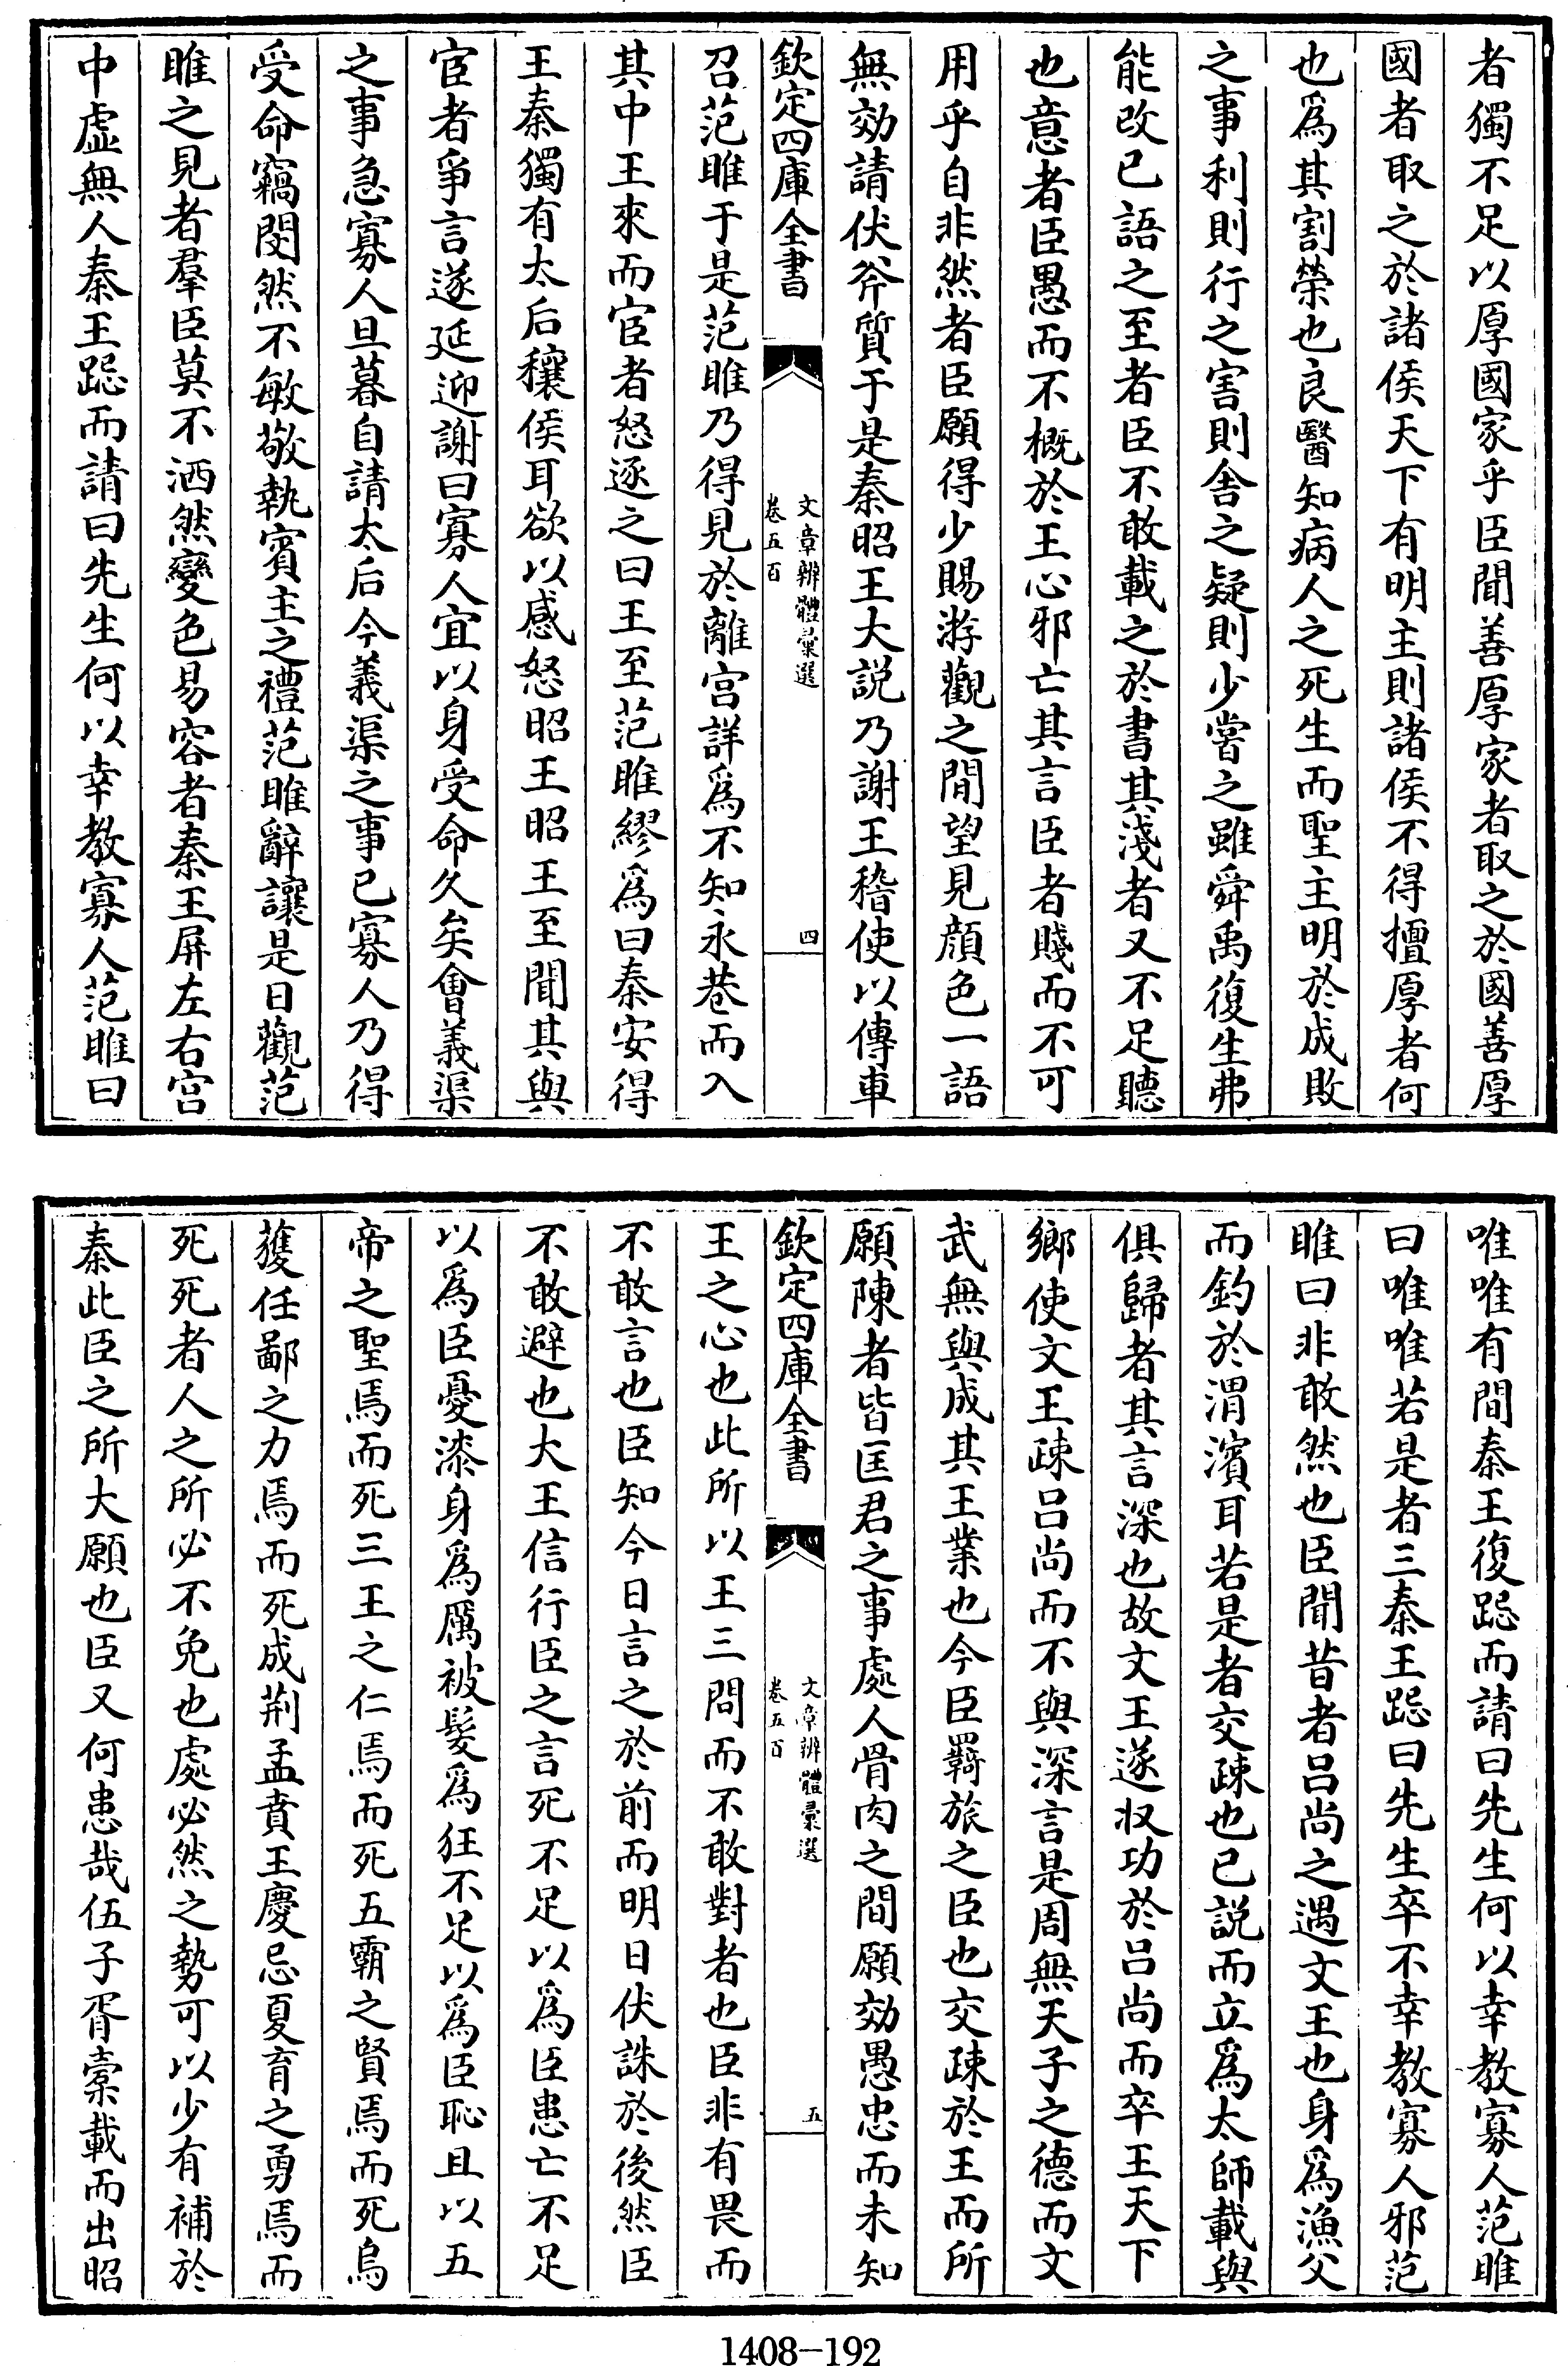 者獨不足以厚國家乎臣聞善厚家者取之於國善厚
國者取之於諸侯天下有明主則諸侯不得擅厚者何
也爲其割榮也良醫知病人之死生而聖主明於成敗
之事利則行之害則舍之疑則少嘗之雖舜禹復生弗
能改已語之至者臣不敢載之於書其淺者又不足聽
也意者臣愚而不概於王心邪亡其言臣者賤而不可
用乎自非然者臣願得少賜游觀之間望見顔色一語
無効請伏斧質于是秦昭王大説乃謝王稽使以傳車
欽定四庫全書
文章辨體彙選
卷五百
四
召范睢于是范睢乃得見於離宫詳爲不知永巷而入
其中王來而宦者怒逐之曰王至范睢繆爲曰秦安得
王秦獨有太后穰侯耳欲以感怒昭王昭王至聞其與
宦者爭言遂延迎謝曰寡人宜以身受命久矣會義渠
之事急寡人旦暮自請太后今義渠之事已寡人乃得
受命竊閔然不敏敬執賓主之禮范睢辭讓是日觀范
睢之見者羣臣莫不洒然變色易容者秦王屏左右宫
中虛無人秦王跽而請曰先生何以幸教寡人范睢曰
唯唯有間秦王復跽而請曰先生何以幸教寡人范睢
曰唯唯若是者三秦王跽曰先生卒不幸教寡人邪范
睢曰非敢然也臣聞昔者吕尚之遇文王也身爲漁父
而釣於渭濱耳若是者交疎也已説而立爲太師載與
俱歸者其言深也故文王遂収功於吕尚而卒王天下
鄉使文王疎吕尚而不與深言是周無天子之德而文
武無與成其王業也今臣羇旅之臣也交疎於王而所
願陳者皆匡君之事處人骨肉之間願効愚忠而未知
欽定四庫全書
文章辨體彙選
卷五百
五
王之心也此所以王三問而不敢對者也臣非有畏而
不敢言也臣知今日言之於前而明日伏誅於後然臣
不敢避也大王信行臣之言死不足以爲臣患亡不足
以爲臣憂漆身爲厲被髮爲狂不足以爲臣恥且以五
帝之聖焉而死三王之仁焉而死五霸之賢焉而死烏
獲任鄙之力焉而死成荆孟賁王慶忌夏育之勇焉而
死死者人之所必不免也處必然之勢可以少有補於
秦此臣之所大願也臣又何患哉伍子胥槖載而出昭
1408-192